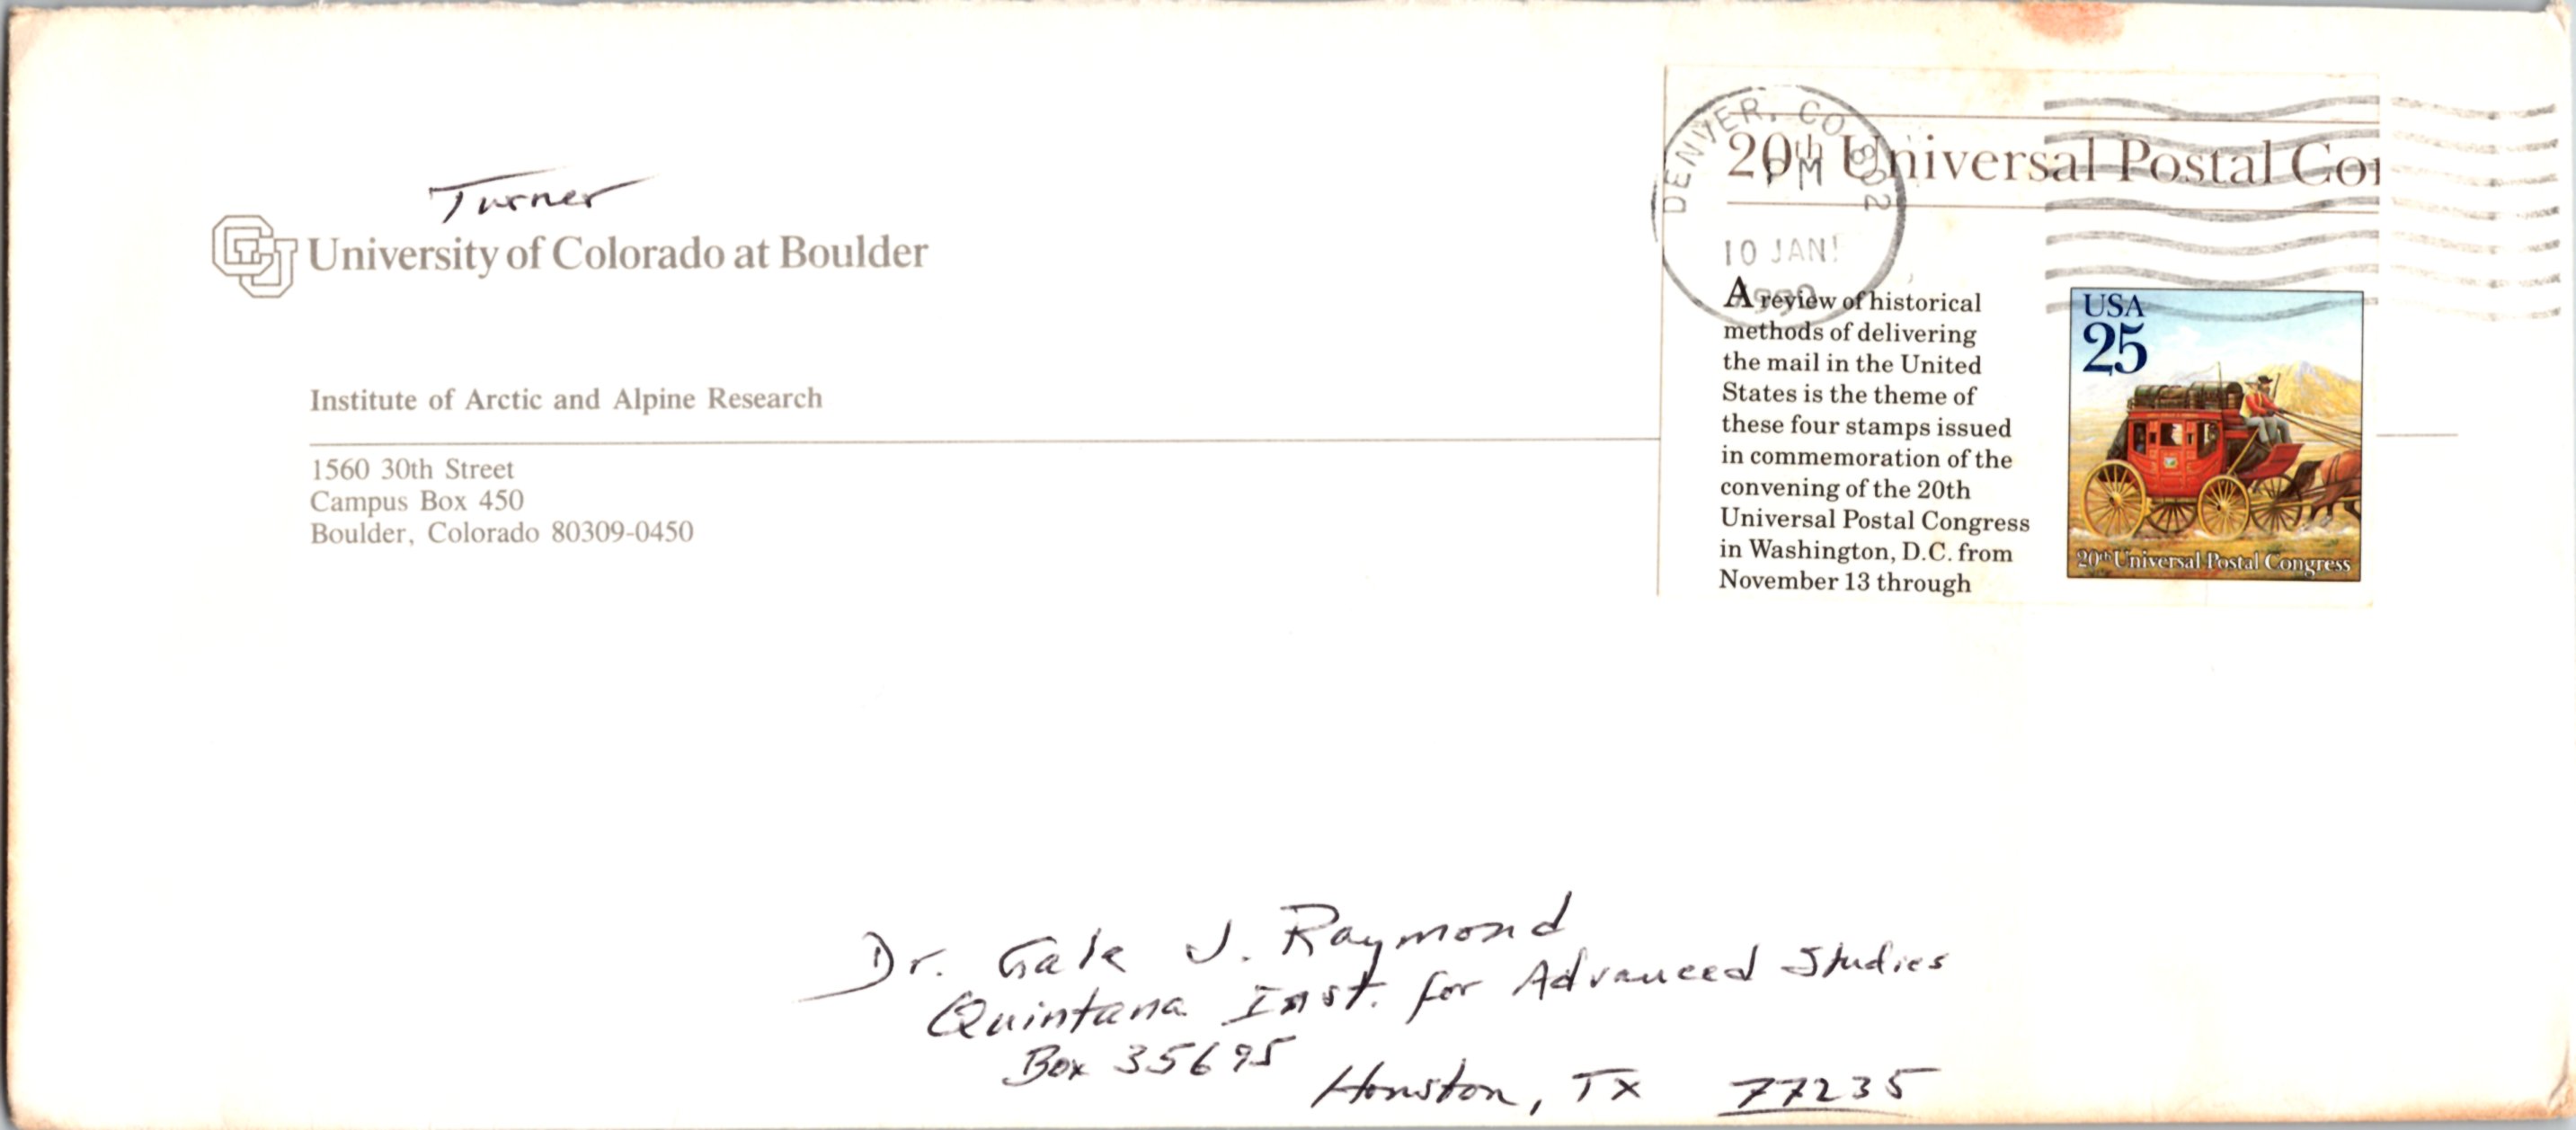 Turner
CU University of Colorado at Boulder
Institute of Arctic and Alpine Research
1560 30th Street
Campus Box 450
Boulder, Colorado 80309-0450
DENVER, CO 802
PM
10 JAN
1990
20th Universal Postal Con
A review of historical
methods of delivering
the mail in the United
States is the theme of
these four stamps issued
in commemoration of the
convening of the 20th
Universal Postal Congress
in Washington, D.C. from
November 13 through
USA
25
20th Universal Postal Congress
Dr. Gale J. Raymond
Quintana Inst. for Advanced Studies
Box 35695
Houston, TX 77235